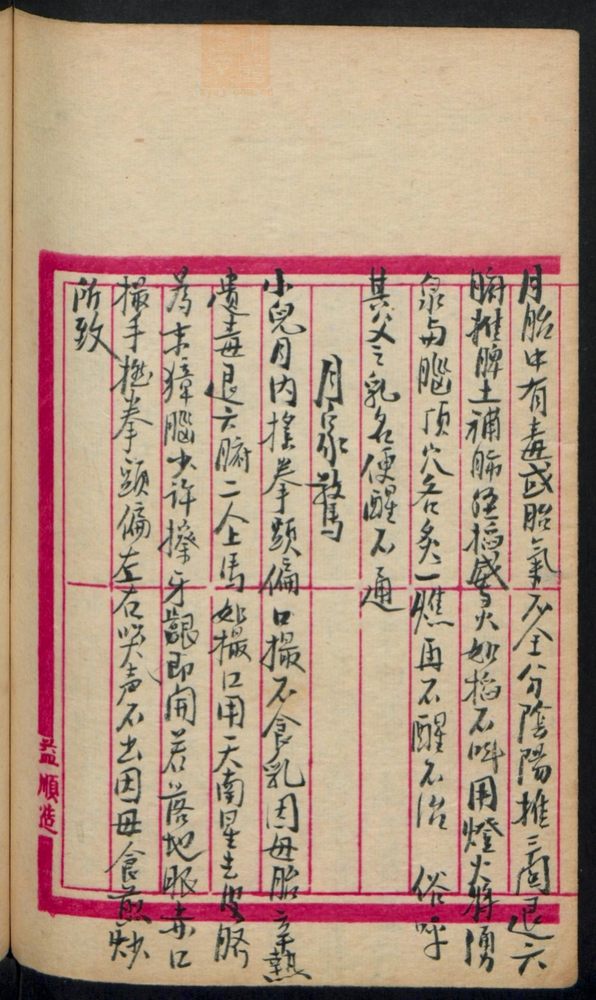 月胎中有毒或胎氣不全分陰陽推三関退六
腑推脾土補肺經掐威灵火如掐不叫用燈火將湧
泉与腦頂穴各炙一燋再不醒不治 俗呼
其父之乳名便醒不通
月家驚
小兒月内搖拳頭偏口撮不食乳因母胎辛熱
遺毒退六腑二人上馬如撮口用一天南星去皮臍
為末獐腦少許擦牙齦即開若落地眼赤口
撮手撚拳頭偏左右哭声不出因母食煎炒
所致
益順造